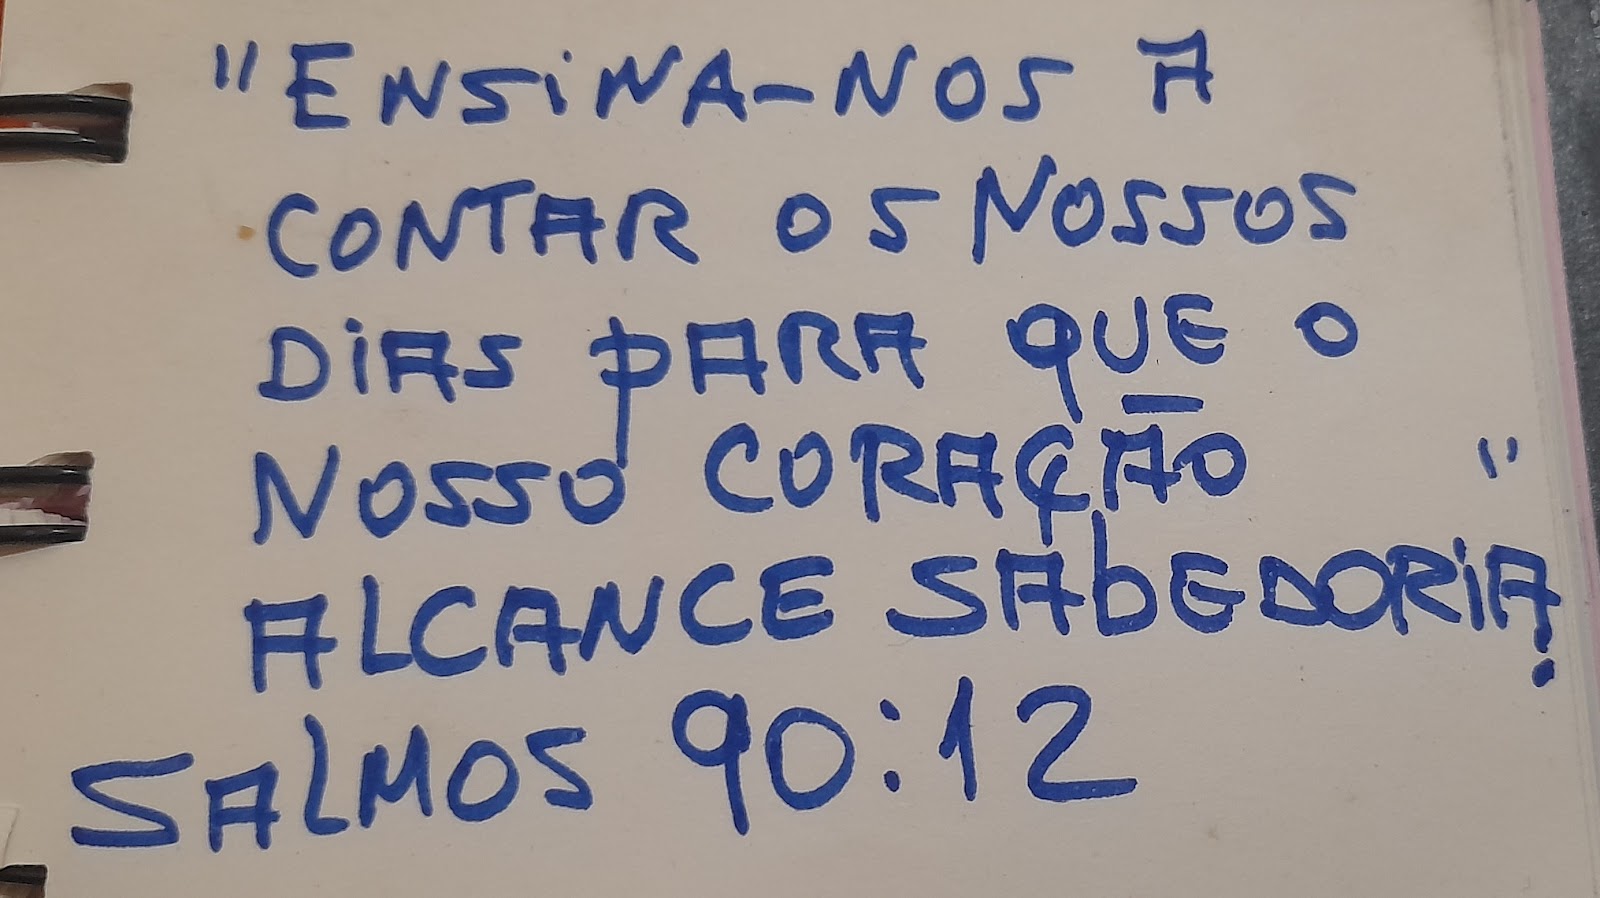 "ENSINA-NOS A
CONTAR OS NOSSOS
DIAS PARA QUE O
NOSSO CORAÇÃO
ALCANCE SABEDORIA."
SALMOS 90:12